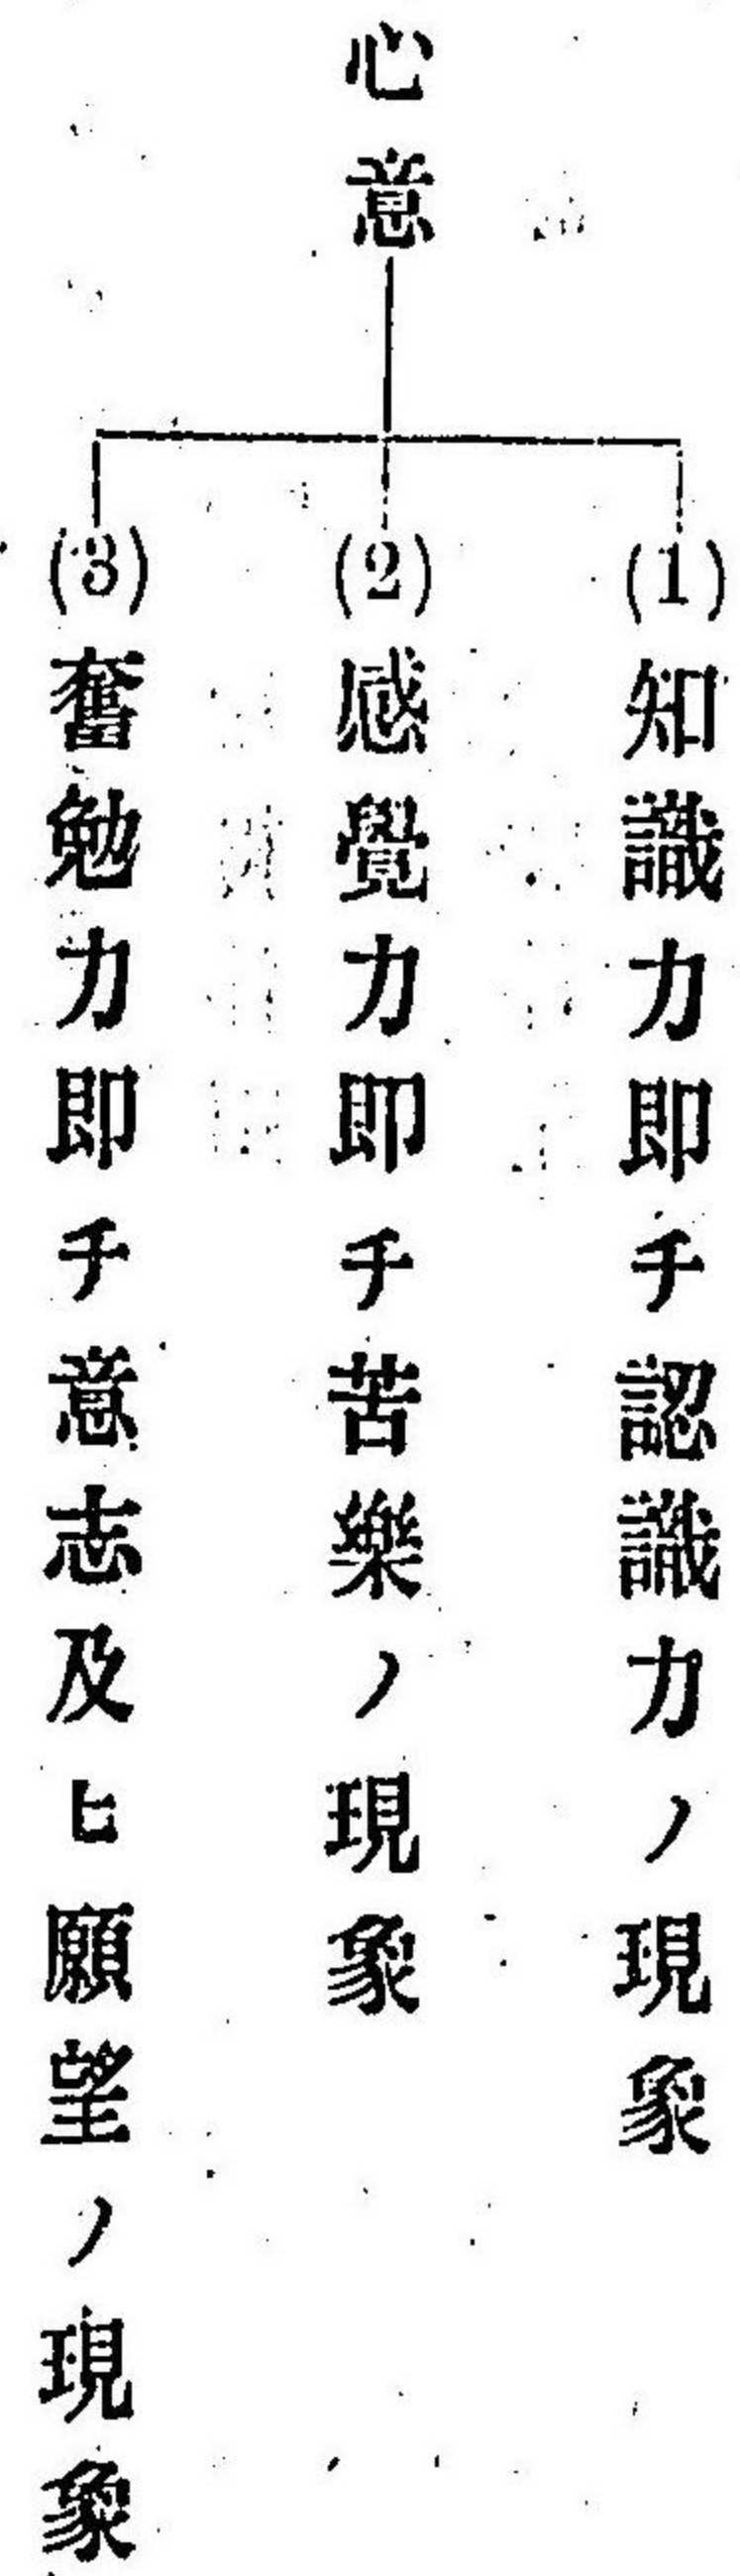 心意
(1)知識力即チ認識力ノ現象
(2)感覺力即チ苦樂ノ現象
(3)奮勉力即チ意志及ヒ願望ノ現象